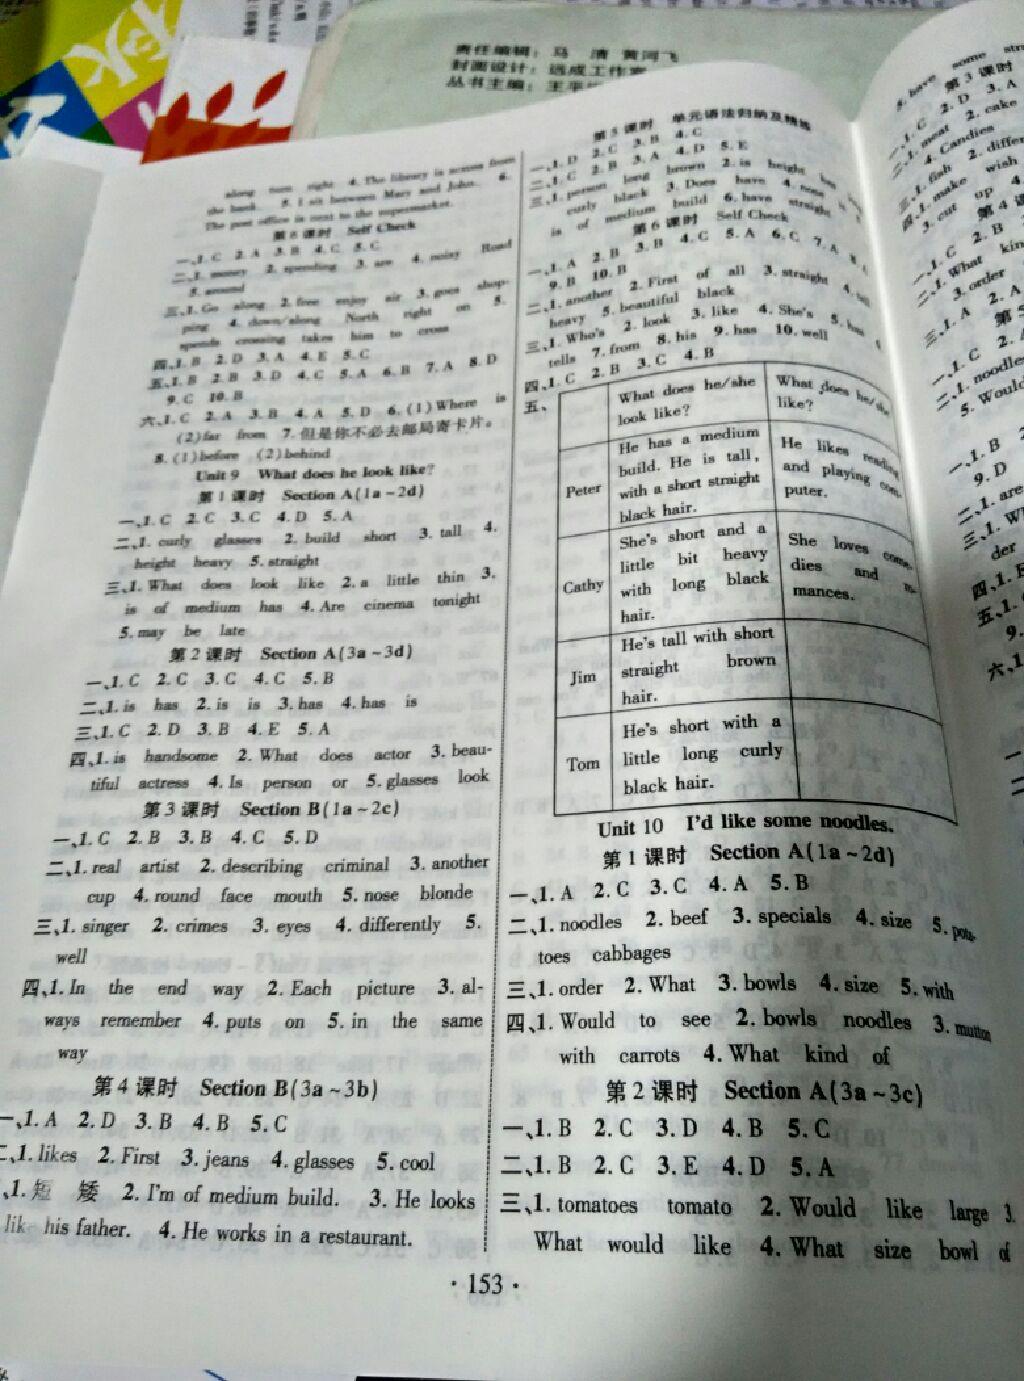 责任编辑：马 清 黄河飞
封面设计：远成工作室
丛书主编：王
along turn right 4. The library is across from
the bank. 5. I sit between Mary and John. 6.
The post office is next to the supermarket.
第6课时 Self Check
一、1. C 2. A 3. B 4. C 5. C
二、1. money 2. spending 3. are 4. noisy Road
5. around
三、1. Go along 2. free enjoy air 3. goes shop-
ping 4. down/along North right on 5.
spends crossing takes him to cross
四、1. B 2. D 3. A 4. E 5. C
五、1. B 2. B 3. D 4. C 5. A 6. B 7. A 8. D
9. C 10. B
六、1. C 2. A 3. B 4. A 5. D 6. (1)Where is
(2)far from 7. 但是你不必去邮局寄卡片。
8. (1)before (2)behind
Unit 9 What does he look like?
第1课时 Section A(1a~2d)
一、1. C 2. C 3. C 4. D 5. A
二、1. curly glasses 2. build short 3. tall 4.
height heavy 5. straight
三、1. What does look like 2. a little thin 3.
is of medium has 4. Are cinema tonight
5. may be late
第2课时 Section A(3a~3d)
一、1. C 2. C 3. C 4. C 5. B
二、1. is has 2. is is 3. has 4. has is
三、1. C 2. D 3. B 4. E 5. A
四、1. is handsome 2. What does actor 3. beau-
tiful actress 4. Is person or 5. glasses look
第3课时 Section B(1a~2c)
一、1. C 2. B 3. B 4. C 5. D
二、1. real artist 2. describing criminal 3. another
cup 4. round face mouth 5. nose blonde
三、1. singer 2. crimes 3. eyes 4. differently 5.
well
四、1. In the end way 2. Each picture 3. al-
ways remember 4. puts on 5. in the same
way
第4课时 Section B(3a~3b)
一、1. A 2. D 3. B 4. B 5. C
二、1. likes 2. First 3. jeans 4. glasses 5. cool
、1. 短 矮 2. I'm of medium build. 3. He looks
like his father. 4. He works in a restaurant.
第5课时 单元语法归纳及精练
一、1. D 2. C 3. B 4. C
二、1. C 2. B 3. A 4. D 5. E
三、1. person long brown 2. is height
curly black 3. Does have 4. none
is of medium build 6. have straight
第6课时 Self Check
一、1. A 2. B 3. B 4. C 5. A 6. C 7. A
9. B 10. B
二、1. another 2. First of all 3. straight 4.
heavy 5. beautiful black
三、1. Who's 2. look 3. like 4. She's 5. has
tells 7. from 8. his 9. has 10. well
四、1. C 2. B 3. C 4. B
五、
What does he/she look like?
What does he/she like?
Peter
He has a medium
build. He is tall,
with a short straight
black hair.
He likes reading
and playing com-
puter.
Cathy
She's short and a
little bit heavy
with long black
hair.
She loves come-
dies and ro-
mances.
Jim
He's tall with short
straight brown
hair.
Tom
He's short with a
little long curly
black hair.
Unit 10 I'd like some noodles.
第1课时 Section A(1a~2d)
一、1. A 2. C 3. C 4. A 5. B
二、1. noodles 2. beef 3. specials 4. size 5. pota-
toes cabbages
三、1. order 2. What 3. bowls 4. size 5. with
四、1. Would to see 2. bowls noodles 3. mutton
with carrots 4. What kind of
第2课时 Section A(3a~3c)
一、1. B 2. C 3. D 4. B 5. C
二、1. B 2. C 3. E 4. D 5. A
三、1. tomatoes tomato 2. Would like large 3.
What would like 4. What size bowl of
· 153 ·
5. have some
第3课时
一、1. C 2. D 3. A
二、1. meat 2. cake
4. Candies
三、1. fish 2.
四、1. make wish
3. cut up 4.
第4课
一、1. C 2. B
二、1. What
3. order
三、1. A 2. A
第5
一、1. C 2.
二、1. noodle
5. Would
一、1. B 2.
9. D
二、1. are
三、1. W
der
四、1.
五、1.
9.
六、1